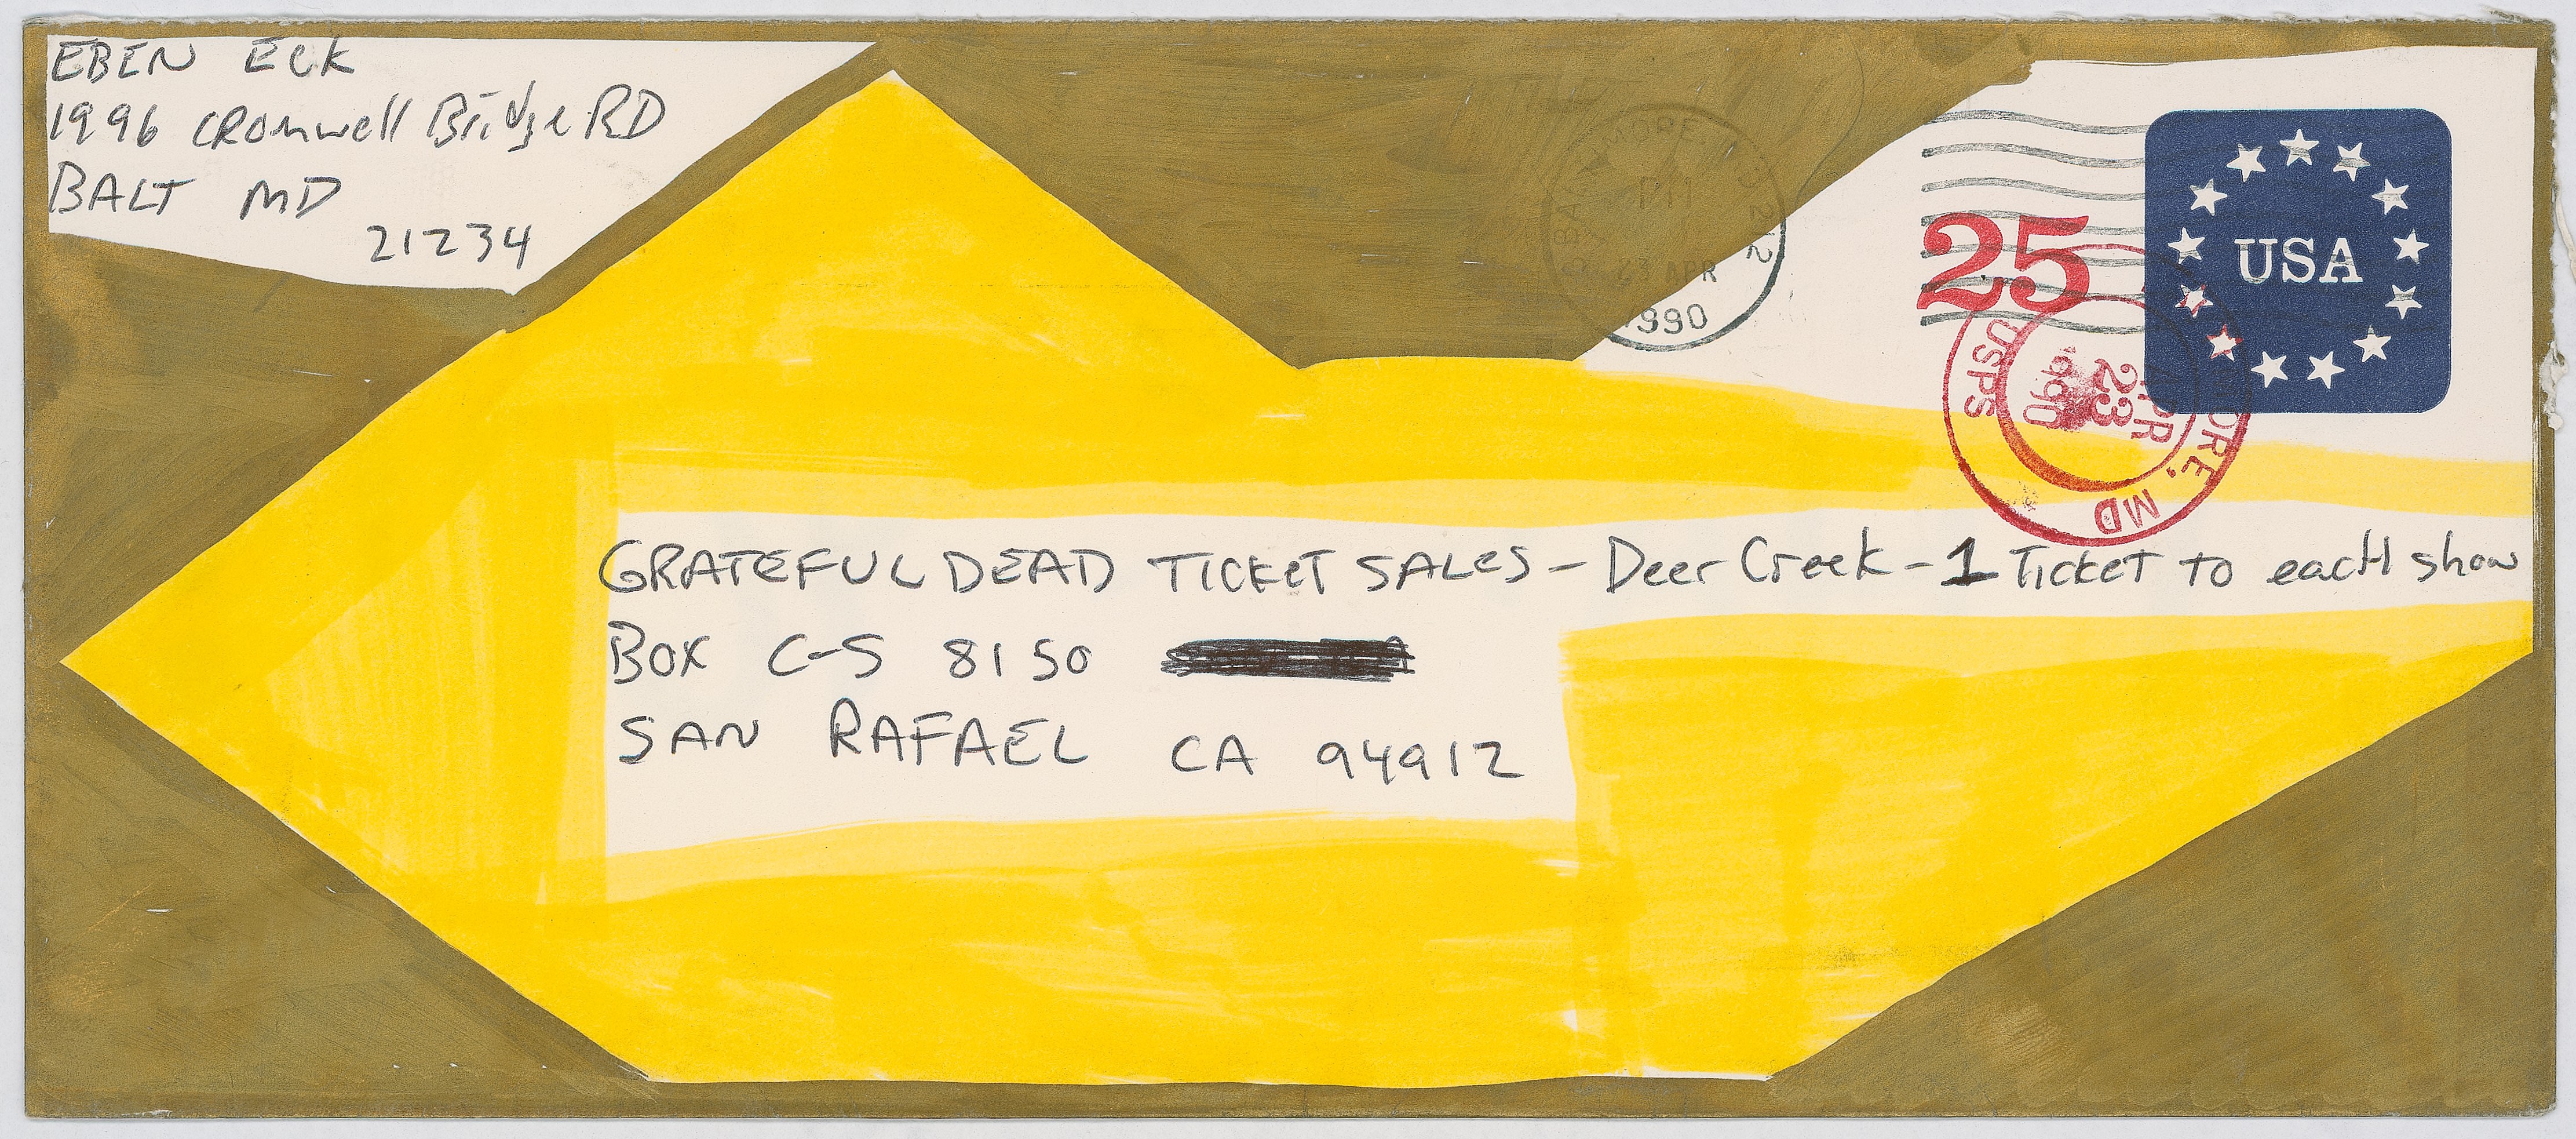 EBEN ECK
1996 CROMWELL BRIDGE RD
BALT MD
21234
BALTIMORE, MD 212
PM
23 APR
1990
25
USA
USPS
APR
23
1990
MORE, MD
GRATEFUL DEAD TICKET SALES - Deer Creek - 1 TICKET TO eacH show
BOX C-S 8150
SAN RAFAEL CA 94912